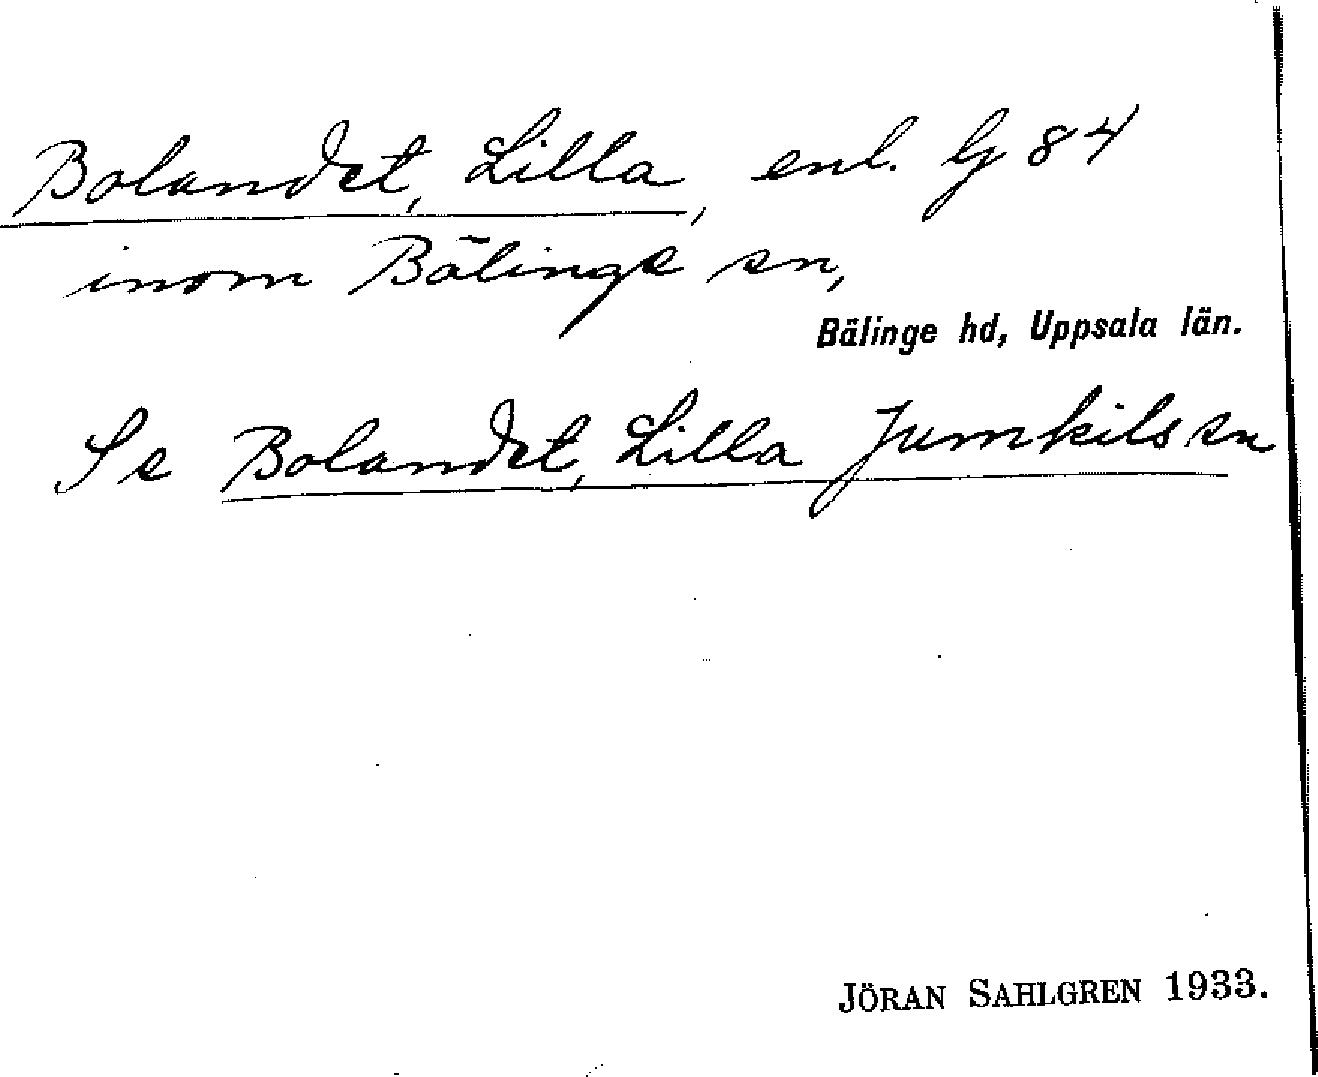 Bolandet, Lilla, enl. G 84
inom Bälinge sn,
Bälinge hd, Uppsala län.
Se Bolandet, Lilla Jumkils sn
JÖRAN SAHLGREN 1933.